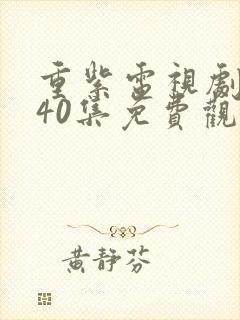 重紫電視劇
40集免費觀
黃靜芬